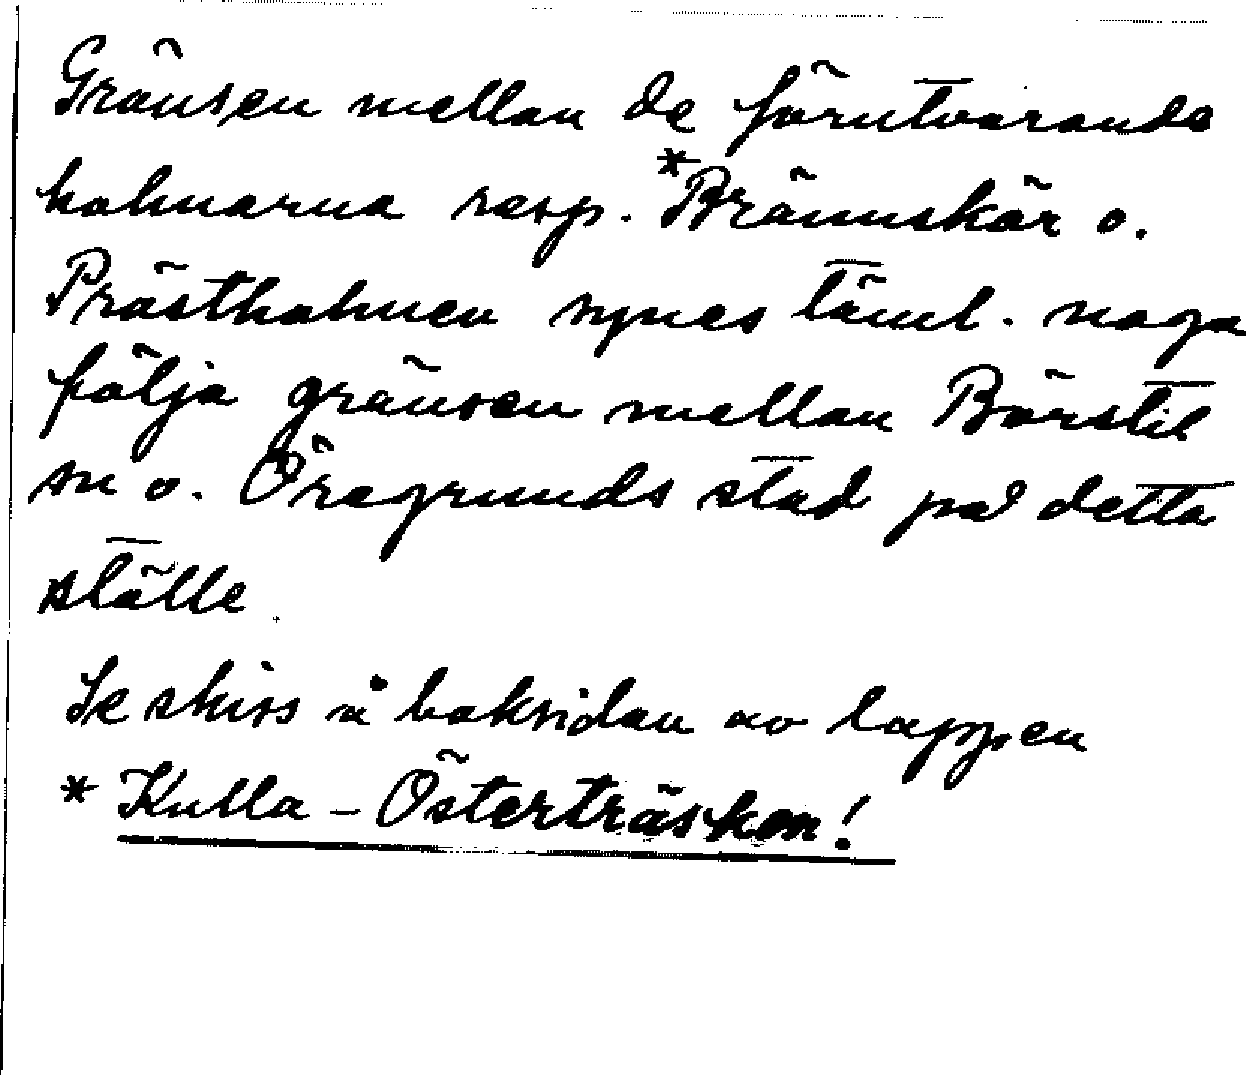 Gränsen mellan de förutvarande
holmarna resp. *Brännskär o.
Prästholmen synes täml. noga
följa gränsen mellan Börstil
sn o. Öregrunds stad på detta
ställe.
Se skiss å baksidan av lappen
* Kulla - Österträsken!